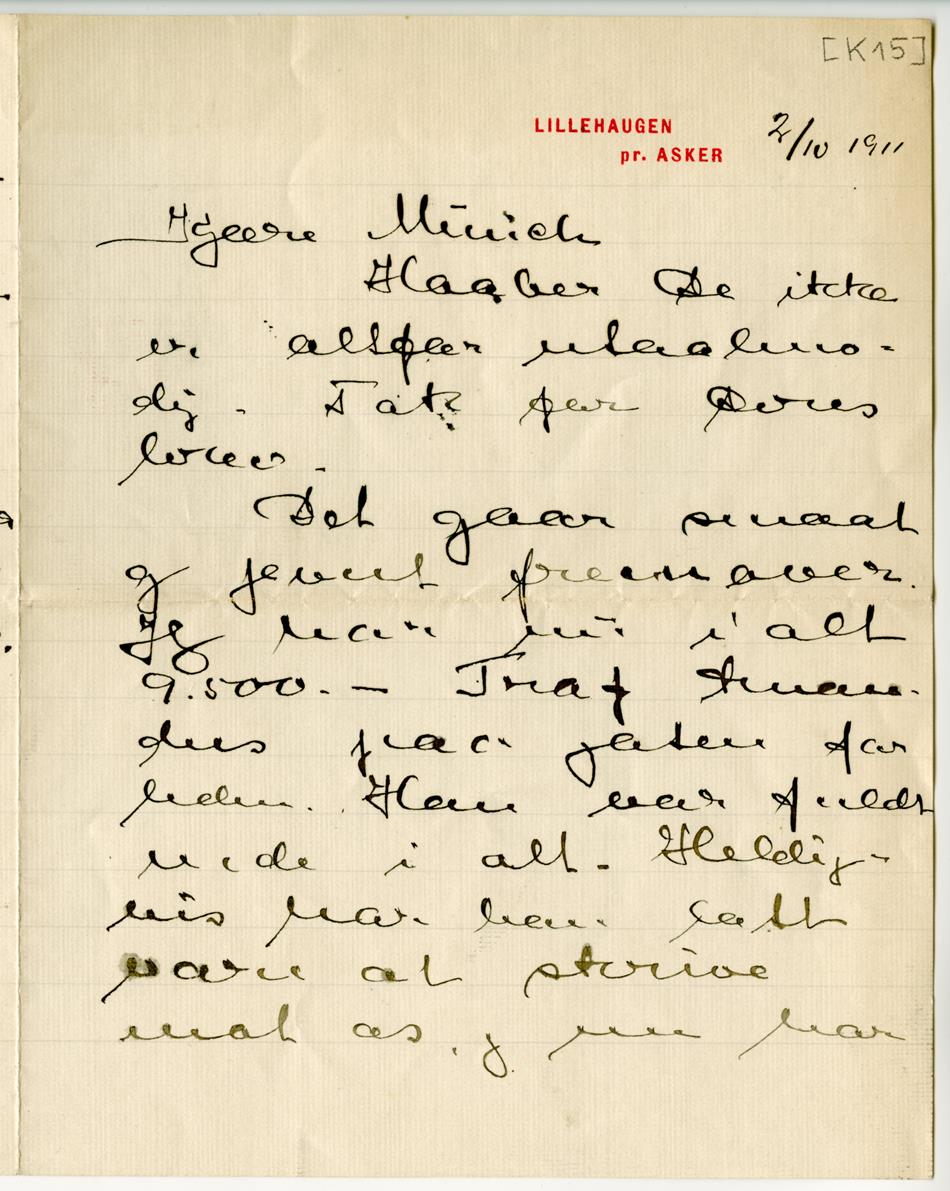 [K15]
LILLEHAUGEN
pr. ASKER
2/10 1911
Kjære Münich
Haaber De ikke
er altfor utaalmo-
dig. Tak for Deres
brev.
Det gaar smaat
og jevnt fremover.
Jeg har nu i alt
9.500.- Traf Aman-
dus paa gaten for
leden. Han var fuldt
inde i alt. Heldig-
vis har han latt
være at skrive
mot os, og nu har